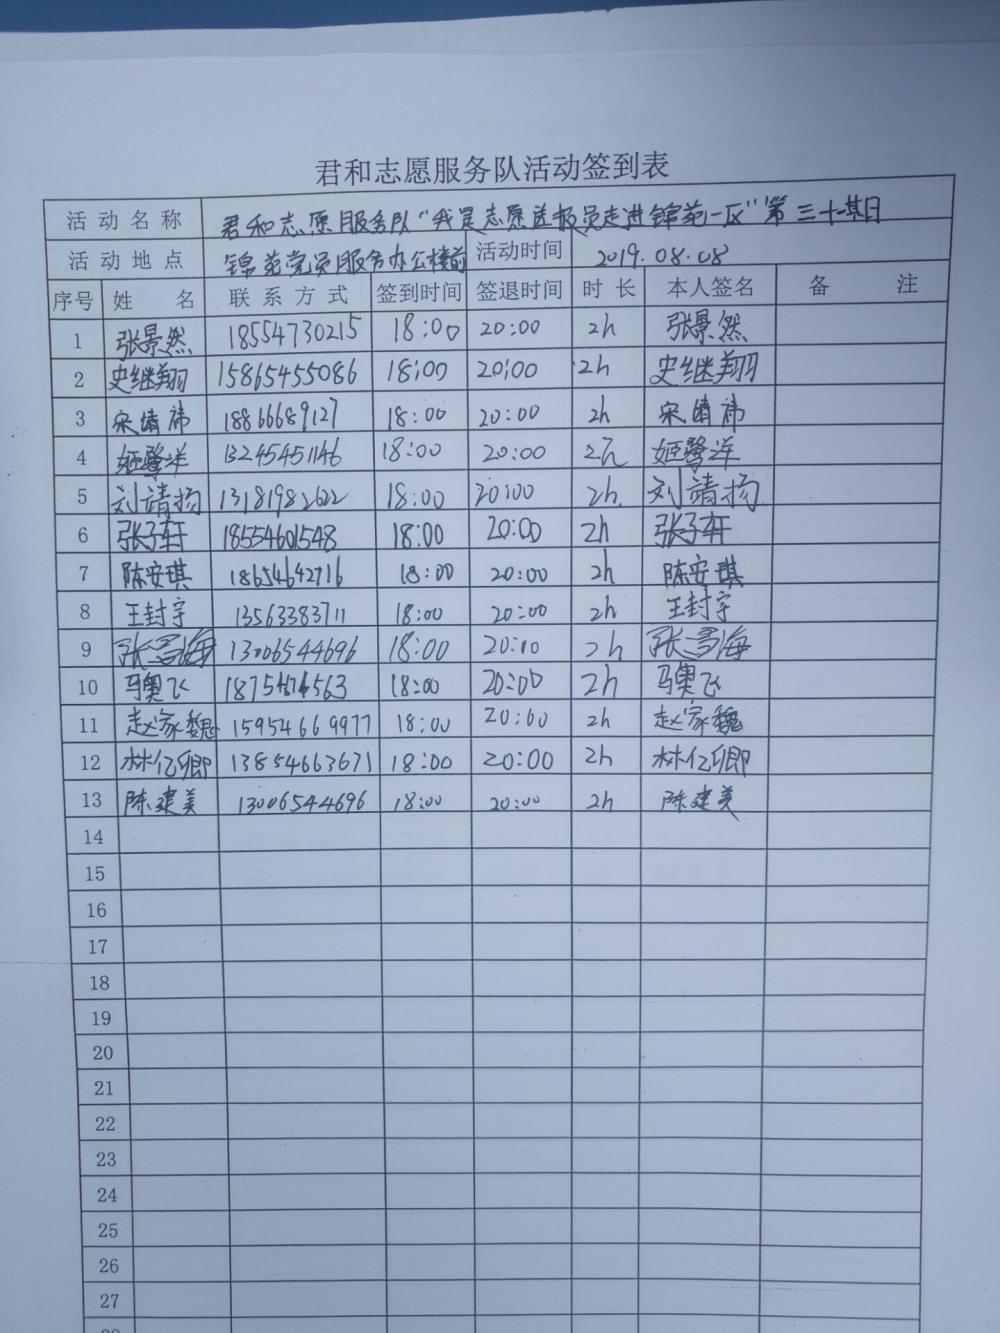 君和志愿服务队活动签到表
活动名称 君和志愿服务队“我是志愿送报员走进锦苑一区”第三十 日
活动地点 锦苑党员服务办公楼前 活动时间 2019.08.08
序号 姓名 联系方式 签到时间 签退时间 时长 本人签名 备注
1 张景然 18554730215 18:00 20:00 2h 张景然
2 史继翔 15865455086 18:00 20:00 2h 史继翔
3 宋婧祎 18866689127 18:00 20:00 2h 宋婧祎
4 姬鹭洋 13245451146 18:00 20:00 2h 姬鹭洋
5 刘靖扬 13181982622 18:00 20:00 2h. 刘靖扬
6 张子轩 18554601548 18:00 20:00 2h 张子轩
7 陈安琪 18654642716 18:00 20:00 2h 陈安琪
8 王封宇 13563383711 18:00 20:00 2h 王封宇
9 张 海 13006544696 18:00 20:00 2h 张 海
10 马奥飞 18:00 20:00 2h 马奥飞
11 赵家魏 15954669977 18:00 20:00 2h 赵家魏
12 林亿卿 13854663671 18:00 20:00 2h 林亿卿
13 陈建美 13006544696 18:00 20:00 2h 陈建美
14
15
16
17
18
19
20
21
22
23
24
25
26
27